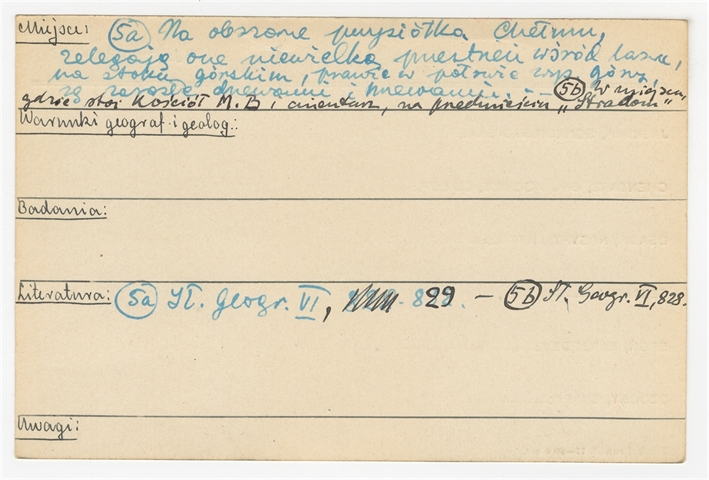 Miejsce: 5a Na obszarze przysiółka Chełmu,
zalegają one niewielką przestrzeń wśród lasu,
na stoku górskim, prawie w połowie wys. góry,
są zarosłe drzewami i krzewami. – 5b W miejscu,
gdzie stoi Kościół M.B i cmentarz, na przedmieściu „Stradom"
Warunki geograf. i geolog.:
Badania:
Literatura: 5a Sł. Geogr. VI, 829. – 5b Sł. Geogr. VI, 828.
Uwagi: